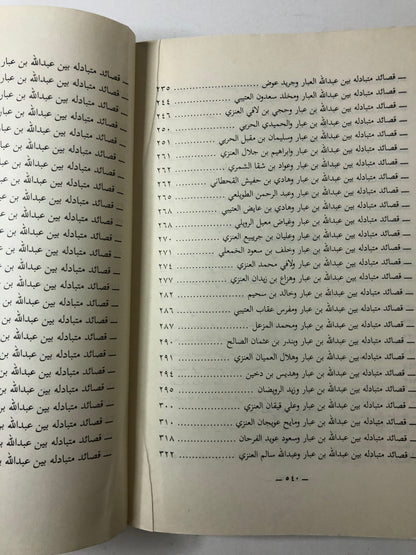 — قصائد متبادله بين عبدالله العبار وجريد عوض ........ ٢٣٥
— قصائد متبادله بين عبدالله العبار ومخلد سعدون العتيبي ........ ٢٤٤
— قصائد متبادله بين عبدالله بن عبار وحجي بن لافي العنزي ........ ٢٤٦
— قصائد متبادله بين عبدالله بن عبار والحميدي الحربي ........ ٢٥٠
— قصائد متبادله بين عبدالله بن عبار وسليمان بن مقبل الحربي ........ ٢٥١
— قصائد متبادله بين عبدالله بن عبار وابراهيم بن جلال العنزي ........ ٢٦١
— قصائد متبادله بين عبدالله بن عبار وعواد بن شقا الشمري ........ ٢٦٢
— قصائد متبادله بين عبدالله بن عبار وهادي بن حفيش القحطاني ........ ٢٦٢
— قصائد متبادله بين عبدالله بن عبار وعبد الرحمن الطويلعي ........ ٢٦٥
— قصائد متبادله بين عبدالله بن عبار وهادي بن عايض العتيبي ........ ٢٦٨
— قصائد متبادله بين عبدالله بن عبار وغياض معبل الرويلي ........ ٢٦٨
— قصائد متبادله بين عبدالله بن عبار وعليان بن جريبيع العنزي ........ ٢٧٠
— قصائد متبادله بين عبدالله بن عبار وخلف بن سعود الخمعلي ........ ٢٧١
— قصائد متبادله بين عبدالله بن عبار ولافي محمد العنزي ........ ٢٧٤
— قصائد متبادله بين عبدالله بن عبار وهزاع بن زيدان العنزي ........ ٢٧٧
— قصائد متبادله بين عبدالله بن عبار وخالد بن سحيم ........ ٢٨٢
— قصائد متبادله بين عبدالله بن عبار ومفرس عقاب العتيبي ........ ٢٨٦
— قصائد متبادله بين عبدالله بن عبار ومحمد المزعل ........ ٢٨٧
— قصائد متبادله بين عبدالله بن عبار وبندر بن عثمان الصالح ........ ٢٩٠
— قصائد متبادله بين عبدالله بن عبار وهلال العميان العنزي ........ ٢٩١
— قصائد متبادله بين عبدالله بن عبار وهديس بن دخين ........ ٢٩٤
— قصائد متبادله بين عبدالله بن عبار وزيد الرويضان ........ ٢٩٥
— قصائد متبادله بين عبدالله بن عبار وعلي قيقان العنزي ........ ٣٠٠
— قصائد متبادله بين عبدالله بن عبار ومايح عويجان العنزي ........ ٣١٠
— قصائد متبادله بين عبدالله بن عبار وسعود عويد الفرحان ........ ٣١٨
— قصائد متبادله بين عبدالله بن عبار وعبدالله سالم العنزي ........ ٣٢٢
— ٥٤٠ —
— قصائد متبادله بين عبدالله بن عبار
— قصائد متبادله بين عبدالله بن عبار
— قصائد متبادله بين عبدالله بن عبار
— قصائد متبادله بين عبدالله بن
— قصائد متبادله بين عبدالله بن
— قصائد متبادله بين عبدالله بن
— قصائد متبادله بين عبدالله بن
— قصائد متبادله بين عبدالله بن
— قصائد متبادله بين عبدالله بن
— قصائد متبادله بين عبدالله بن
— قصائد متبادله بين عبدالله بن
— قصائد متبادله بين عبدالله بن
— قصائد متبادله بين عبدالله بن
— قصائد متبادله بين عبدالله بن
— قصائد متبادله بين عبدالله بن
— قصائد متبادله بين عبدالله بن
— قصائد متبادله بين عبدالله بن
— قصائد متبادله بين عبدالله بن
— قصائد متبادله بين عبدالله بن
— قصائد متبادله بين عبدالله بن
— قصائد متبادله بين عبدالله بن